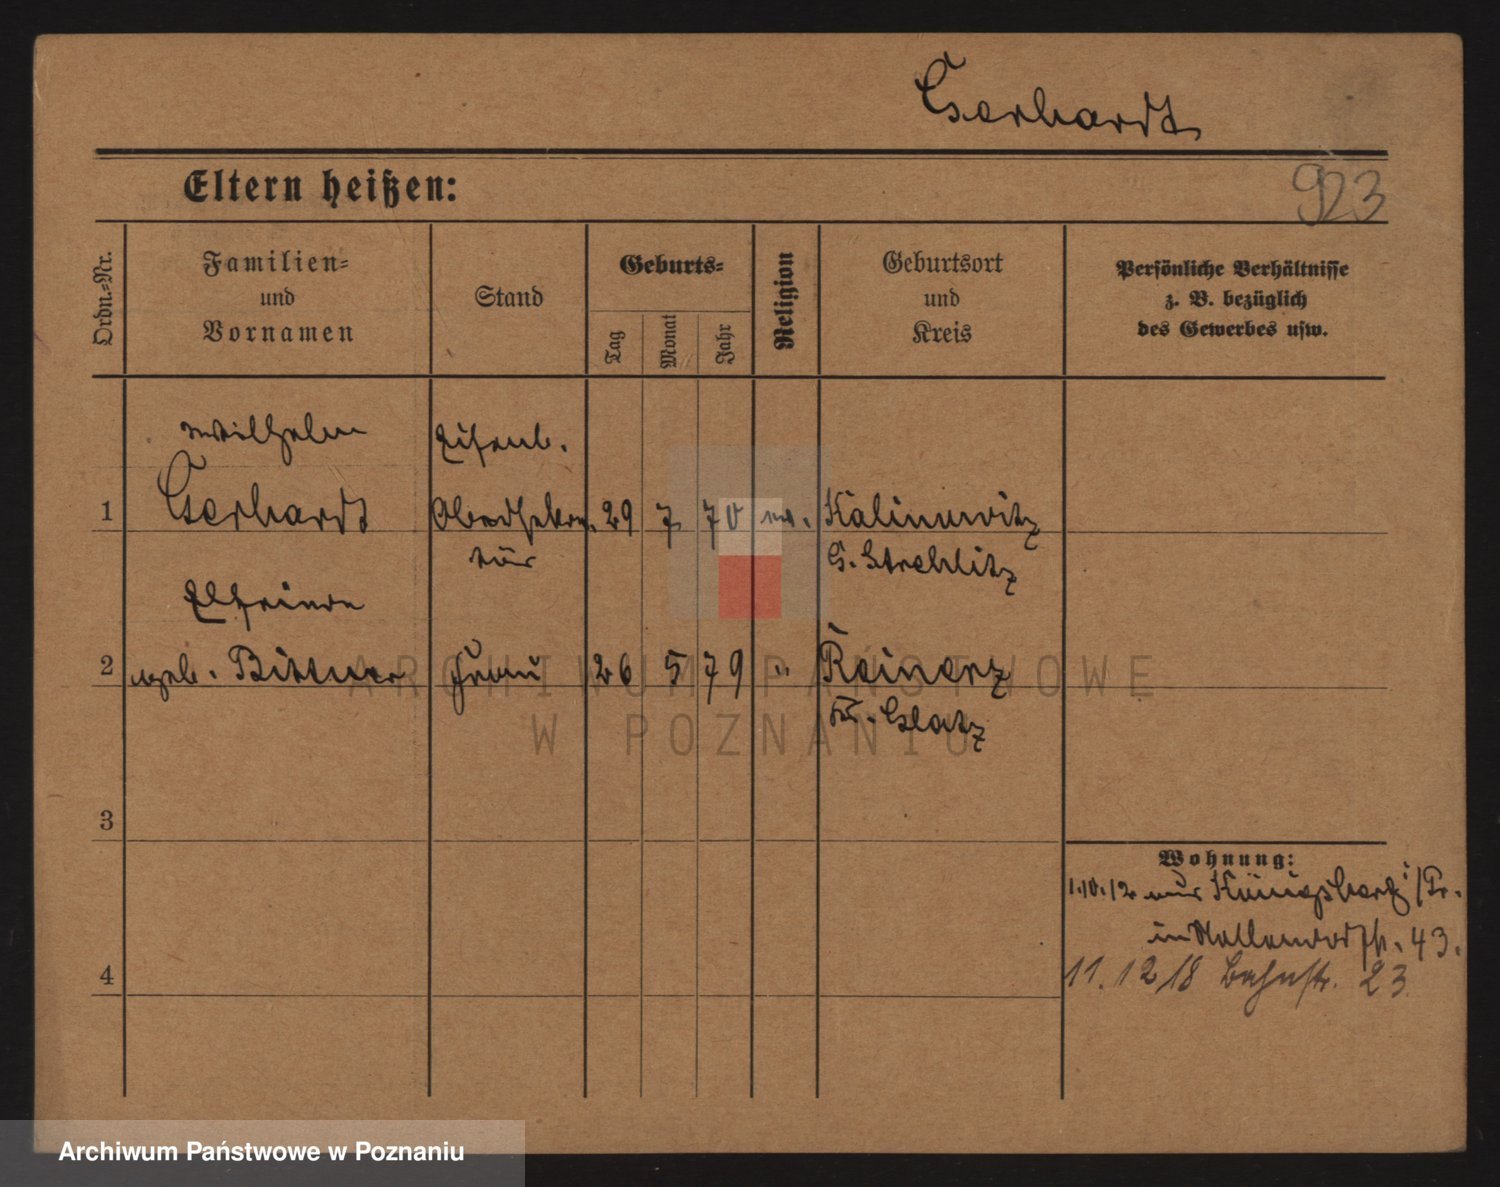 Gerhardt
923
Eltern heißen:
Ordn.-Nr.
Familien-
und
Vornamen
Stand
Geburts-
Tag
Monat
Jahr
Religion
Geburtsort
und
Kreis
Persönliche Verhältnisse
z. B. bezüglich
des Gewerbes usw.
Wilhelm
Eisenb.
1 Gerhardt 29 7 70 Kalinowitz
G. Strehlitz
Elfriede
2 geb. Bittner Frau 26 5 79 " Reinerz
Kr. Glatz
3
4
Wohnung:
1.10.12 aus Königsberg i/Pr.
43.
11.12 18 Bahnstr. 23
ARCHIWUM PAŃSTWOWE
W POZNANIU
Archiwum Państwowe w Poznaniu